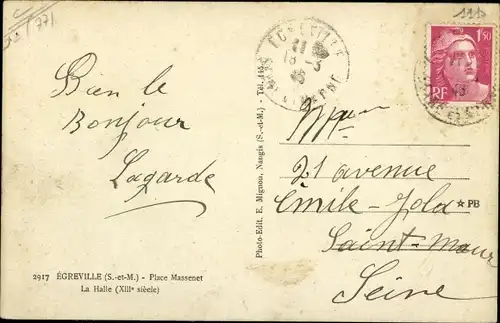 771
111
Bien le
Bonjour
Lagarde
2917 ÉGREVILLE (S.-et-M.) - Place Massenet
La Halle (XIIIᵉ siècle)
Photo-Edit. E. Mignon, Nangis (S.-et-M.) - Tél. 115
EGREVILLE
3
1F50
RF
21 avenue
Emile-Zola
★PB
Saint-Maur
Seine